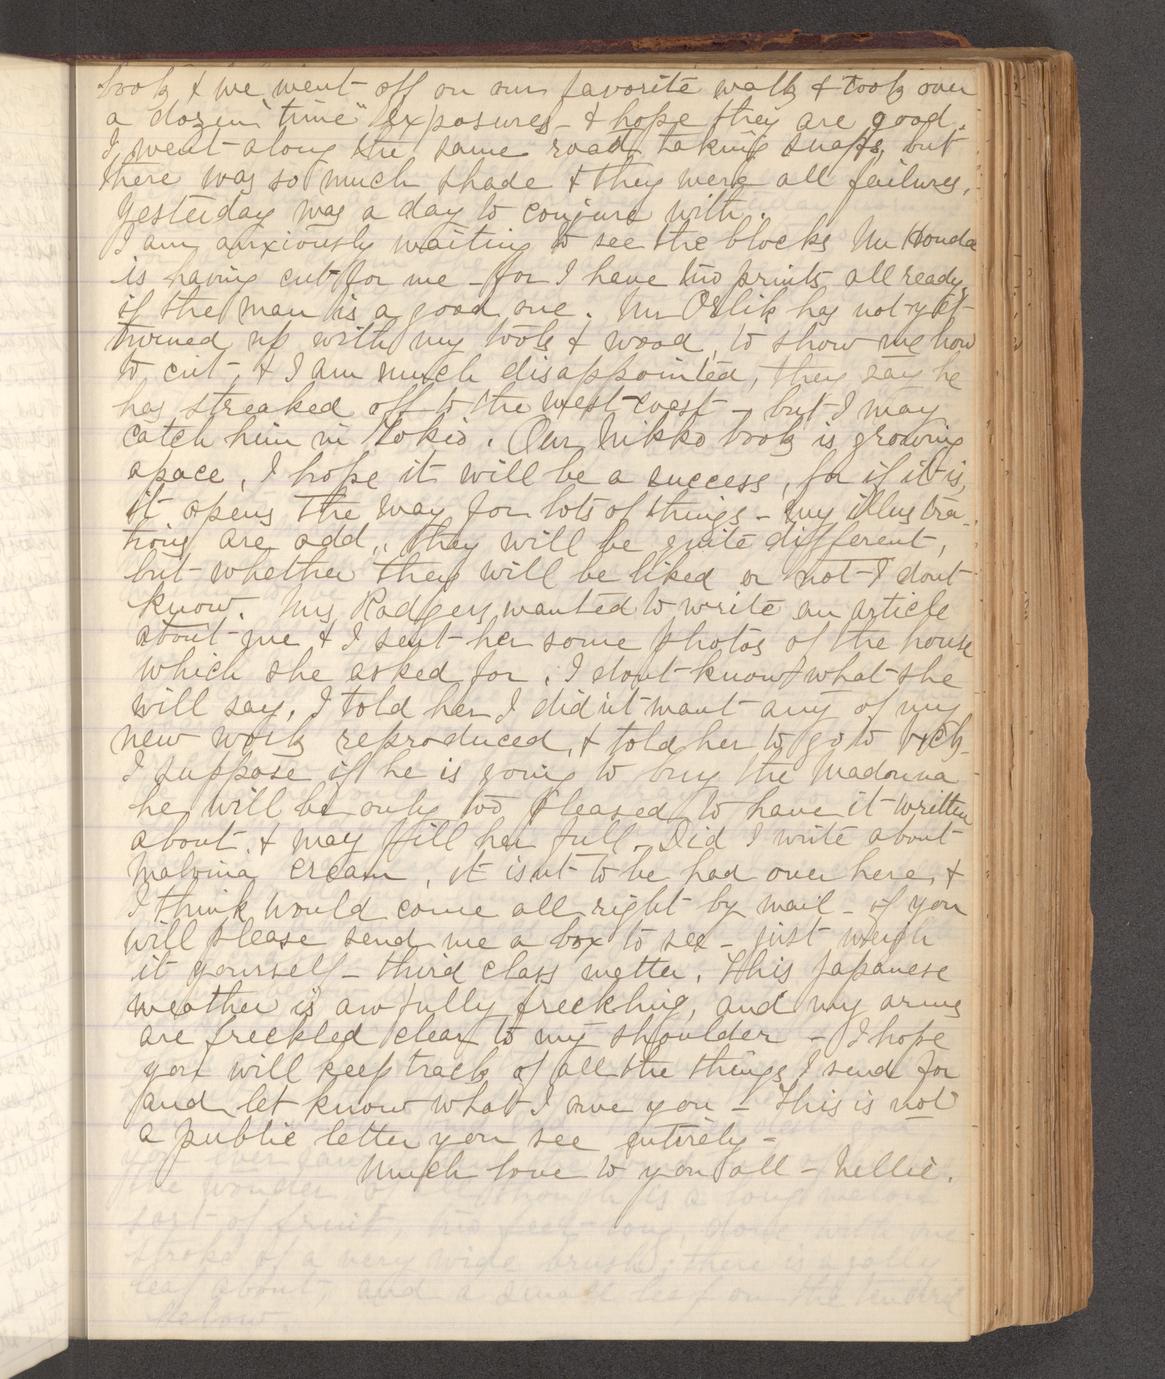 book & we went off on our favorite walk & took over
a dozen "time" exposures - & hope they are good.
I went along the same road taking snaps, but
there was so much shade & they were all failures.
Yesterday was a day to conjure with.
I am anxiously waiting to see the blocks Mr Honda
is having cut for me - for I have two prints all ready,
if the man is a good one. Mr Orlik has not yet
turned up with my tools & wood, to show me how
to cut, & I am much disappointed, they say he
has streaked off to the west coast - but I may
catch him in Tokio. Our Nikko book is growing
apace, I hope it will be a success, for if it is,
it opens the way for lots of things - my illustra-
tions are odd, they will be quite different,
but whether they will be liked or not I dont
know. Mrs Rodgers wanted to write an article
about me & I sent her some photos of the house
which she asked for. I dont know what she
will say, I told her I did n't want any of my
new work reproduced, & told her to go to
I suppose if he is going to buy the Madonna
he will be only too pleased to have it written
about, & may fill her full. Did I write about
Malvina Cream, it isnt to be had over here, &
I think would come all right by mail - if you
will please send me a box to see - just weigh
it yourself - third class matter. This Japanese
weather is awfully freckling, and my arms
are freckled clear to my shoulder - I hope
you will keep track of all the things I send for
and let know what I owe you - This is not
a public letter you see entirely -
Much love to you all - Nellie.